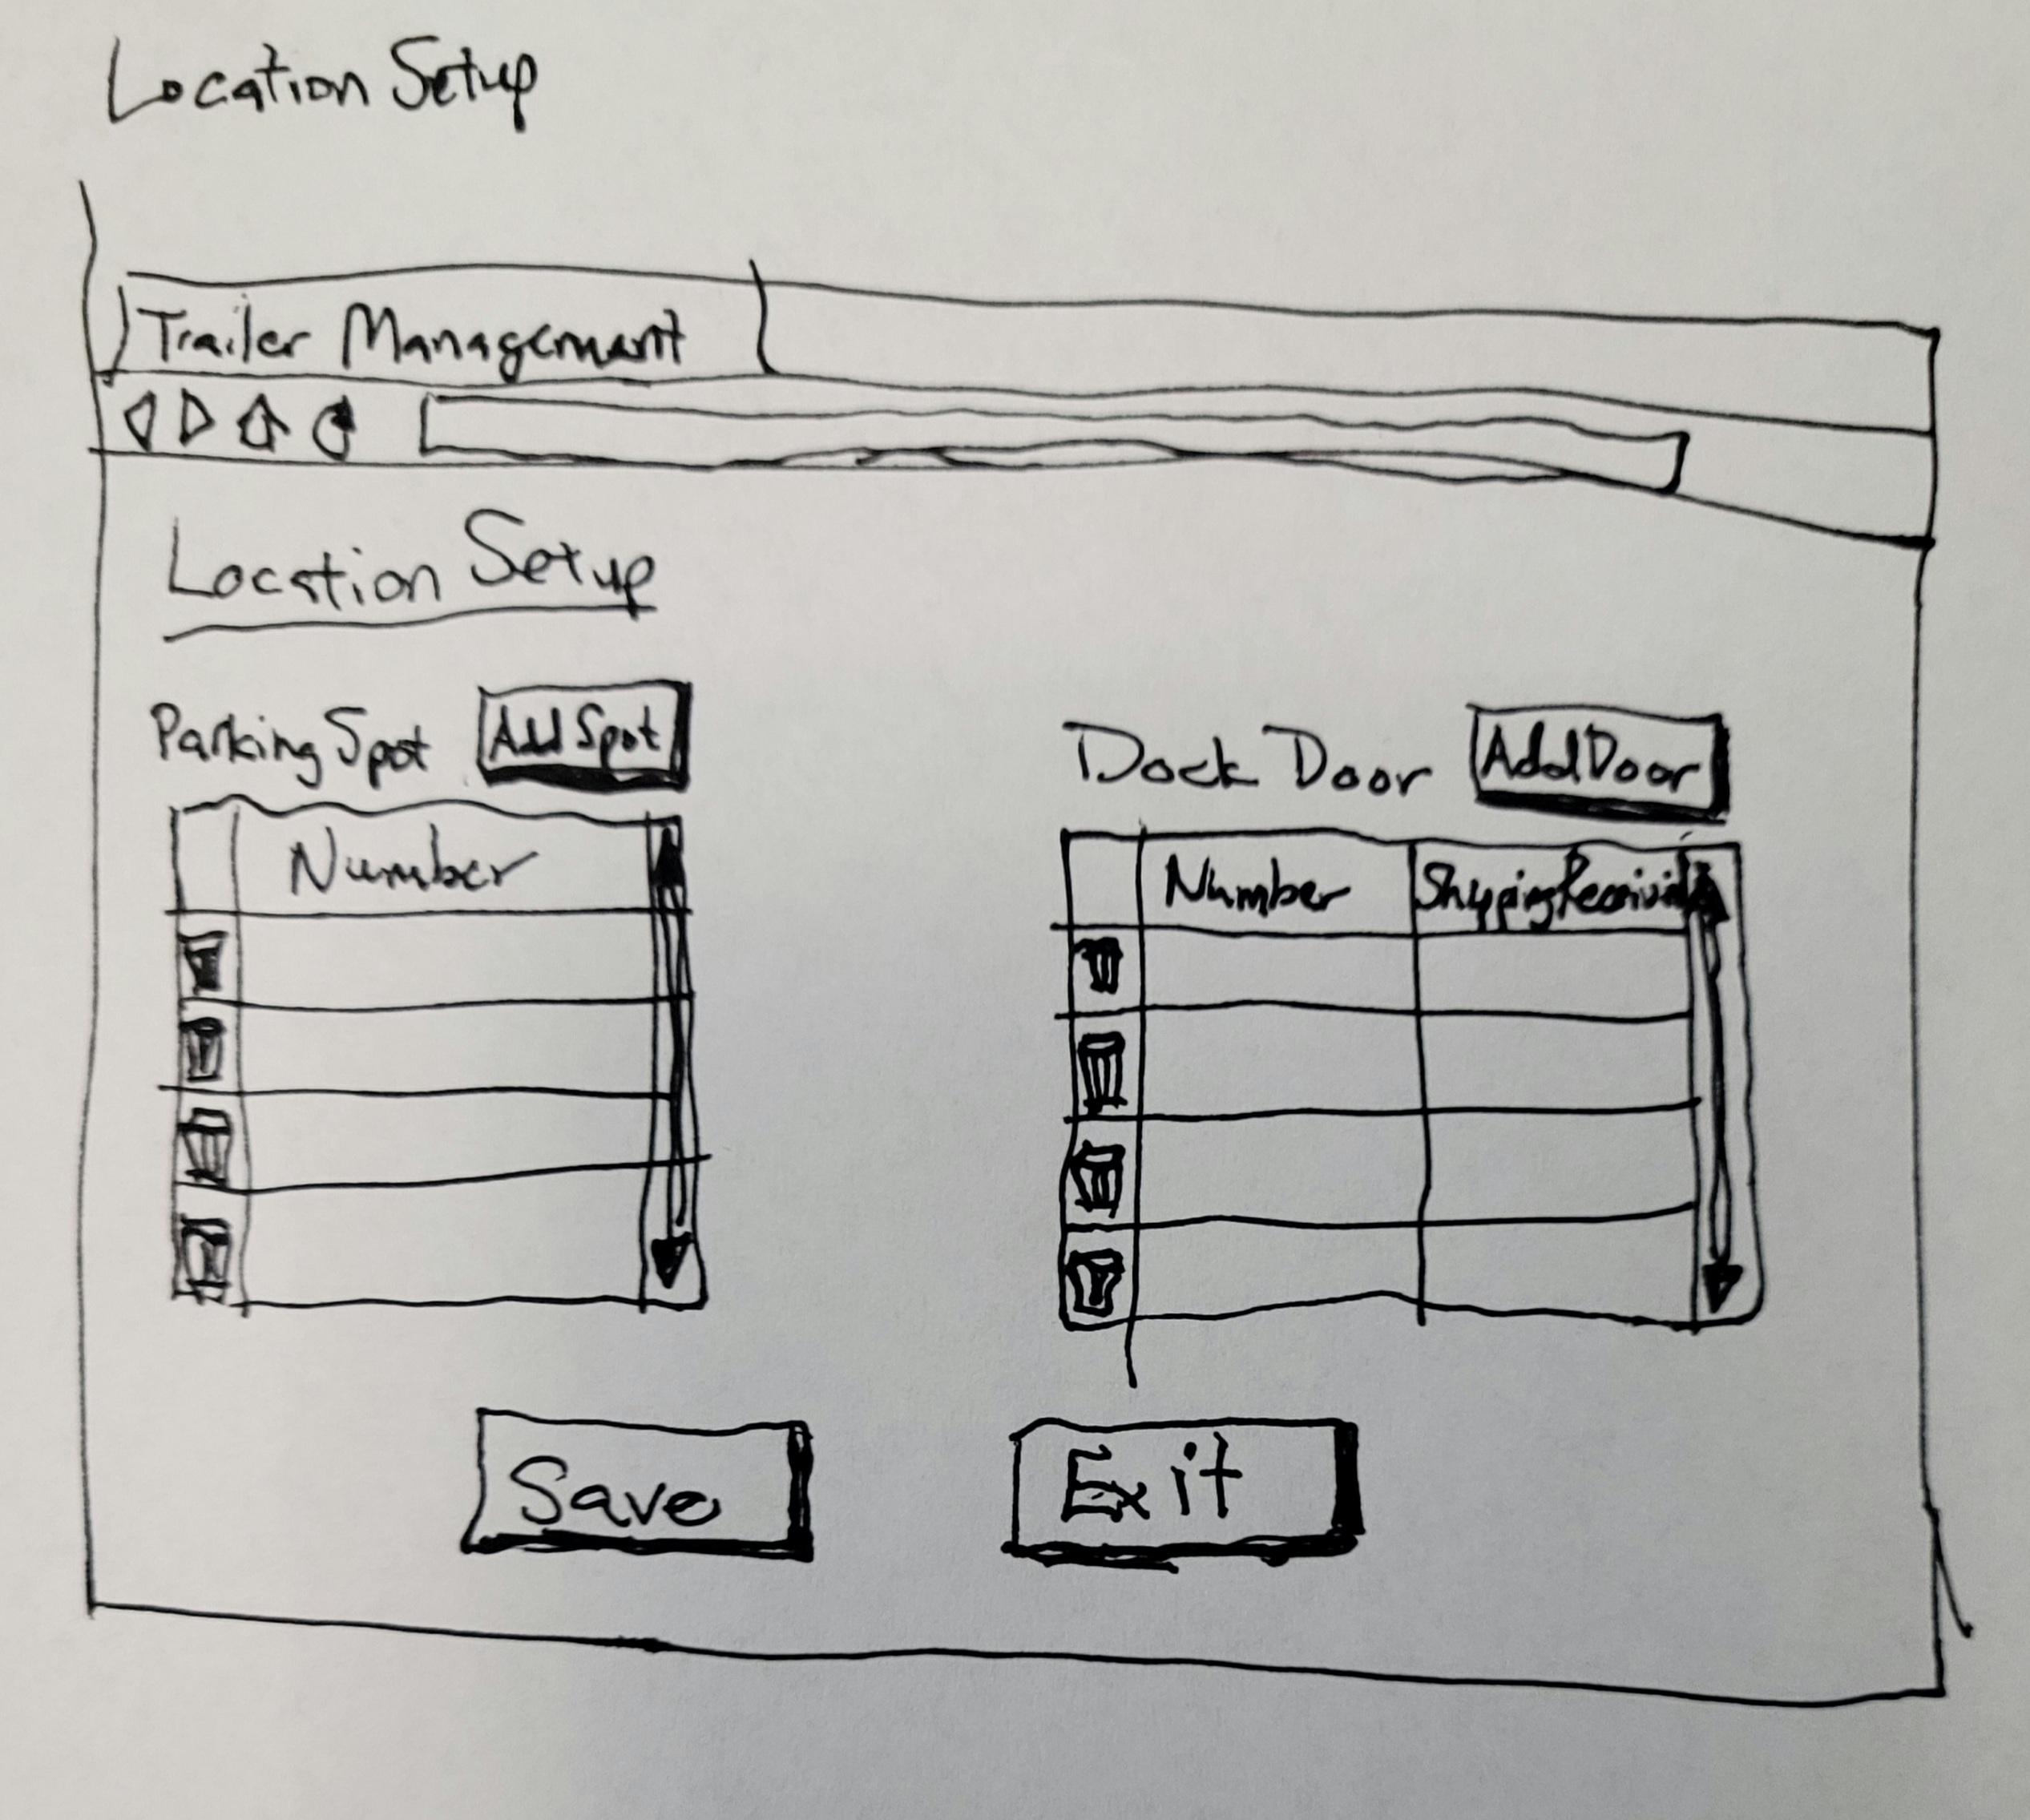 Location Setup
Trailer Management
Location Setup
Parking Spot Add Spot
Dock Door Add Door
Number
Number Shipping Receiving
Save Exit